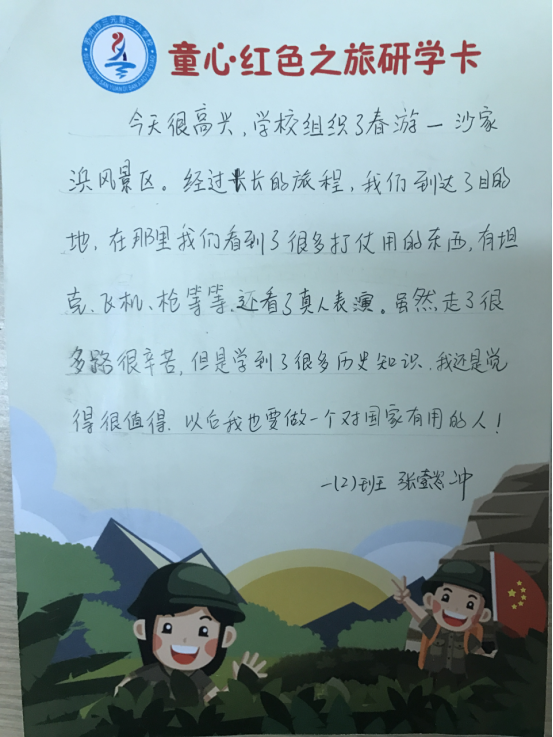 童心·红色之旅研学卡
今天很高兴，学校组织了春游一沙家
浜风景区。经过长长的旅程，我们到达了目的
地，在那里我们看到了很多打仗用的东西，有坦
克、飞机、枪等等，还看了真人表演。虽然，走了很
多路很辛苦，但是学到了很多历史知识，我还是觉
得很值得，以后我也要做一个对国家有用的人！
一(2)班 张